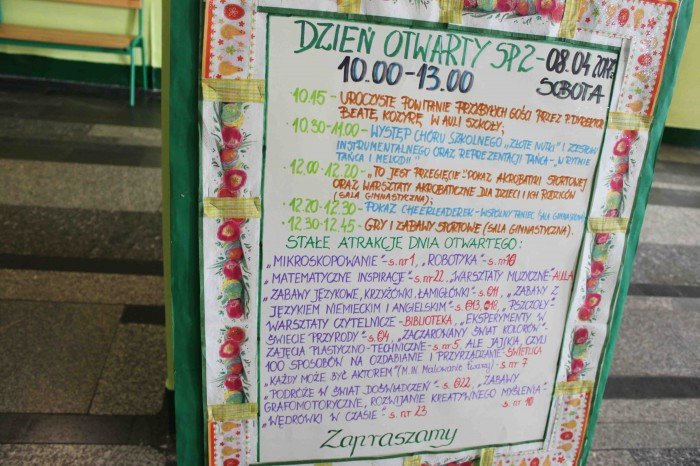 DZIEŃ OTWARTY SP2-08.04.2017r.
10.00-13.00 SOBOTA
10.15 - UROCZYSTE POWITANIE PRZYBYŁYCH GOŚCI PRZEZ P. DYREKTOR
BEATĘ KOZYRĘ W AULI SZKOŁY;
10.30-11.00 - WYSTĘP CHÓRU SZKOLNEGO „ZŁOTE NUTKI" I ZESPOŁU
INSTRUMENTALNEGO ORAZ REPREZENTACJI TAŃCA - „W RYTMIE
TAŃCA I MELODII"
12.00 - 12.20 - „TO JEST PRZEGIĘCIE" POKAZ AKROBATYKI SPORTOWEJ
ORAZ WARSZTATY AKROBATYCZNE DLA DZIECI I ICH RODZICÓW
(SALA GIMNASTYCZNA);
12.20 - 12.30 - POKAZ CHEERLEADEREK - WSPÓLNY TANIEC (SALA GIMNASTYCZNA)
12.30 - 12.45 - GRY I ZABAWY SPORTOWE (SALA GIMNASTYCZNA).
STAŁE ATRAKCJE DNIA OTWARTEGO:
„MIKROSKOPOWANIE" - s. nr 1, „ROBOTYKA" - s. nr 10
„MATEMATYCZNE INSPIRACJE" - s. nr 22, „WARSZTATY MUZYCZNE - AULA
„ZABAWY JĘZYKOWE, KRZYŻÓWKI, ŁAMIGŁÓWKI" - s. 011, „ZABAWY Z
JĘZYKIEM NIEMIECKIM I ANGIELSKIM" - s. 013, 018, „PSZCZOŁY"
WARSZTATY CZYTELNICZE - BIBLIOTEKA, „EKSPERYMENTY W
ŚWIECIE PRZYRODY" - s. 04, „ZACZAROWANY ŚWIAT KOLORÓW" -
ZAJĘCIA PLASTYCZNO-TECHNICZNE - s. nr 5 ALE JAJKA, CZYLI
100 SPOSOBÓW NA OZDABIANIE I PRZYRZĄDZANIE - ŚWIETLICA
„KAŻDY MOŻE BYĆ AKTOREM" (M.IN. Malowanie twarzy) - s. nr 7
„PODRÓŻE W ŚWIAT DOŚWIADCZEŃ" - s. 022, „ZABAWY
GRAFOMOTORYCZNE, ROZWIJANIE KREATYWNEGO MYŚLENIA -
„WĘDRÓWKI W CZASIE" - s. nr 23 s. nr 18
Zapraszamy